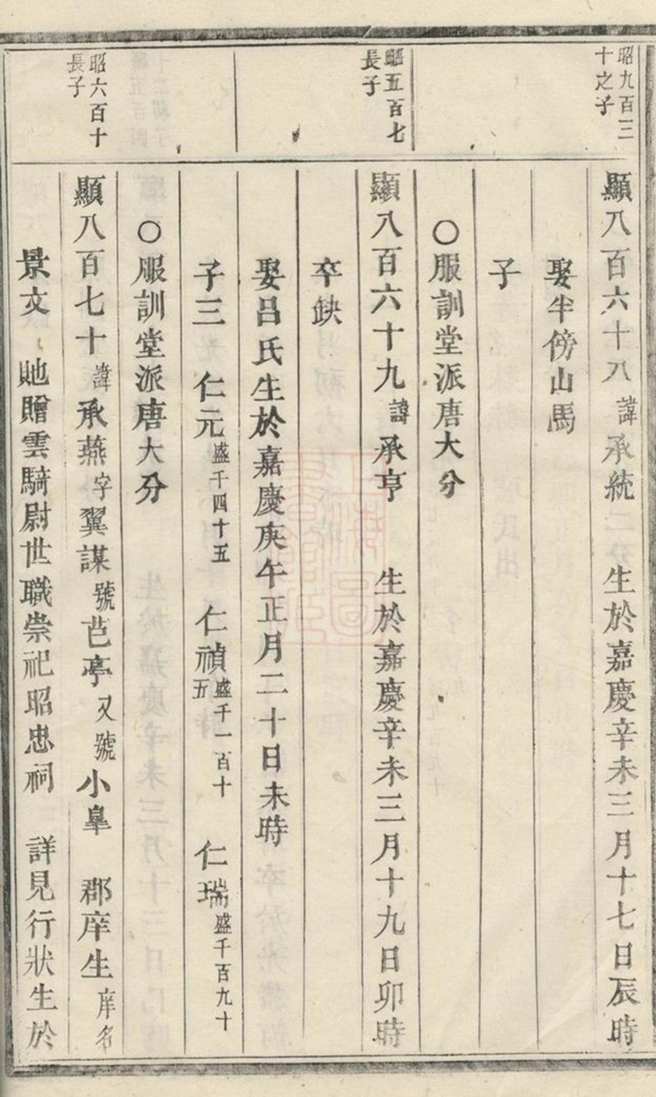 昭九百三
十之子
顯八百六十八諱承統　生於嘉慶辛未三月十七日辰時
娶半傍山馬
子
〇服訓堂派唐大分
昭五百七
長子
顯八百六十九諱承亨　生於嘉慶辛未三月十九日卯時
卒缺
娶呂氏生於嘉慶庚午正月二十日未時
子三　仁元盛千四十五　仁禎盛千一百十五　仁瑞盛千百九十
〇服訓堂派唐大分
昭六百十
長子
顯八百七十諱承燕字翼謀號芑亭又號小臯　郡庠生庠名
景文　貤贈雲騎尉世職崇祀昭忠祠　詳見行狀生於